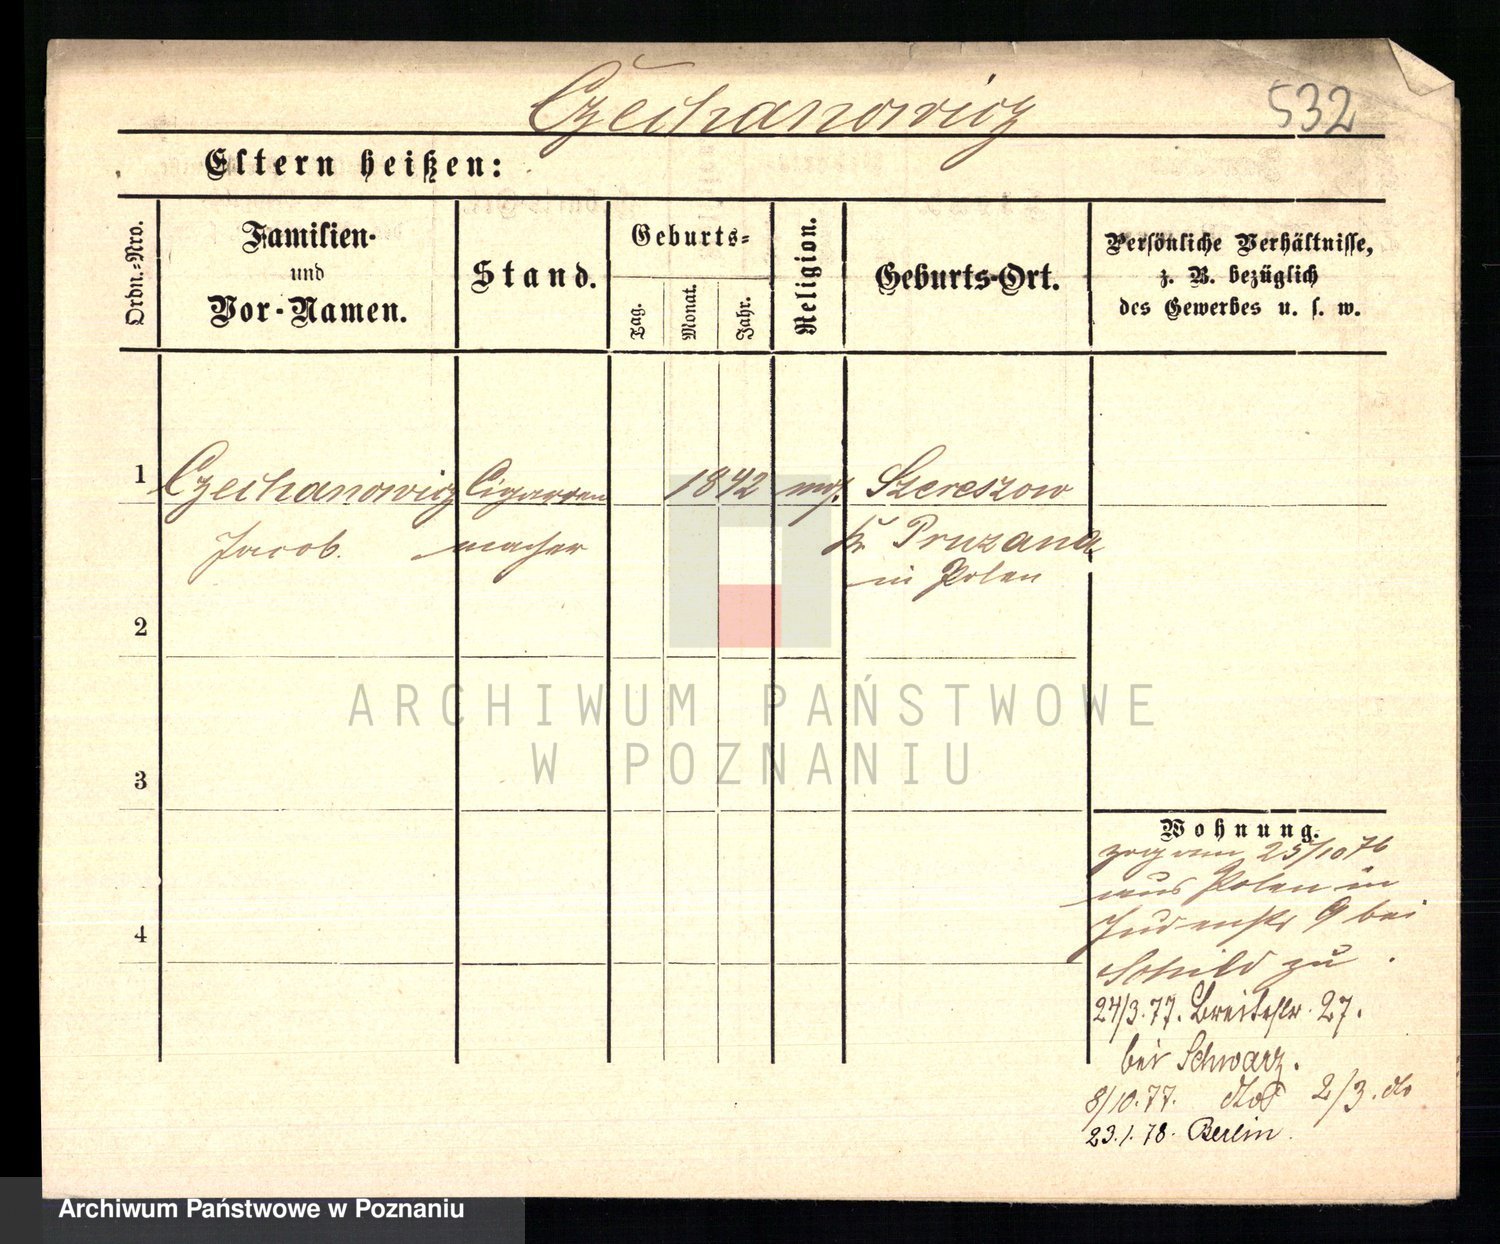 Czechanowicz
532
Eltern heißen:
Ordn.-Nro.
Familien-
und
Vor-Namen.
Stand.
Geburts-
Tag.
Monat.
Jahr.
Religion.
Geburts-Ort.
Persönliche Verhältnisse,
z. B. bezüglich
des Gewerbes u. s. w.
1
Czechanowicz
Jacob.
Cigarren
macher
1842
mos.
Szereszow
Kr Pruzana
in Polen
2
3
4
Wohnung.
zog am 25/10 76
aus Polen in
Judenstr 9 bei
Schild zu
24/3.77. Breitestr. 27.
bei Schwarz.
8/10.77. 2/3. do
23.1.78. Berlin.
ARCHIWUM PAŃSTWOWE
W POZNANIU
Archiwum Państwowe w Poznaniu